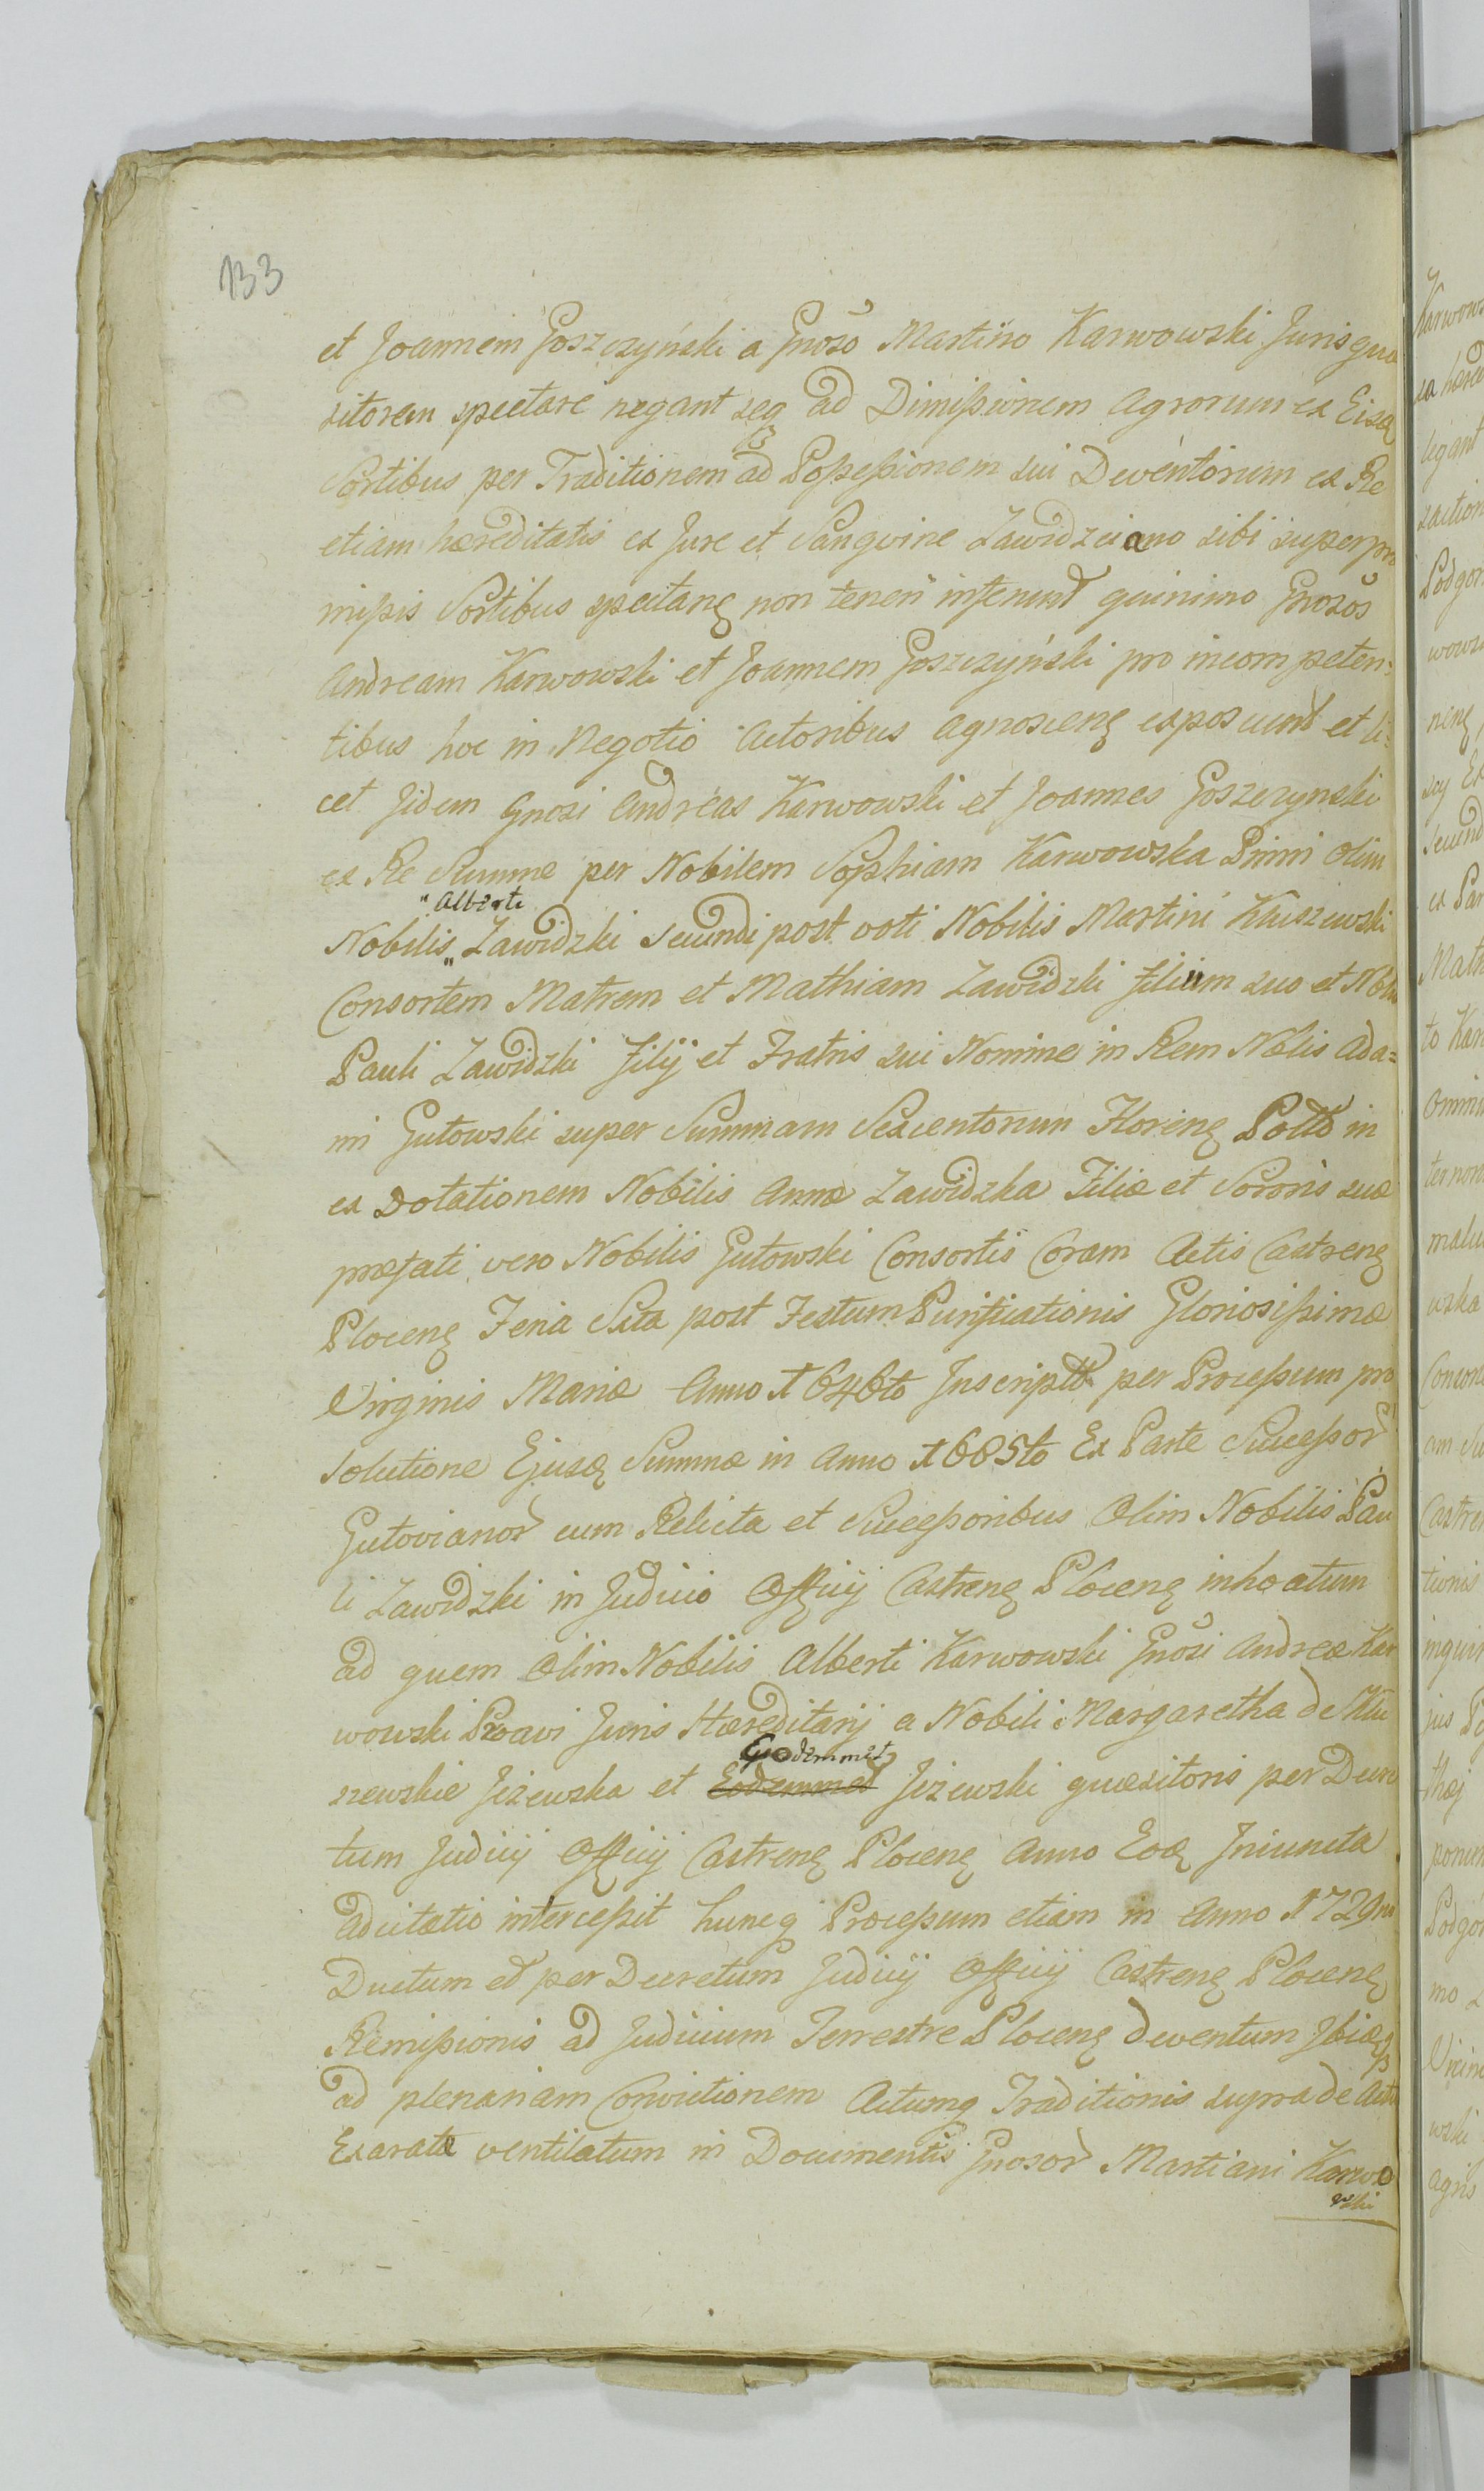 133
et Joannem Goszczyński a Gnoso Martino Karwowski Juris quæ
sitorem spectare negant seq ad Dimissionem Agrorum ex Eisq
Sortibus per Traditionem ad Possessionem sui Deventorum ex Re
etiam hæreditatis ex Jure et Sangvine Zawidzciano sibi super præ
missis Sortibus spectanq non teneri inferunt quinimo Gnosos
Andream Karwowski et Joannem Goszczyński pro incompeten:
tibus hoc in Negotio Actoribus agnoscenq exposcunt et li:
cet Jidem Gnosi Andreas Karwowski et Joannes Goszczynski
ex Re Summæ per Nobilem Sophiam Karwowska Primi Olim
" Alberti
Nobilis " Zawidzki Secundi post voti Nobilis Martini Kłuszewski
Consortem Matrem et Mathiam Zawidzki filium suo et Nobi
Pauli Zawidzki filij et Fratris sui Nomine in Rem Noblis Ada=
mi Gutowski super Summam Sexcentorum Florenq Polld in
ex Dotationem Nobilis Annæ Zawidzka Filiæ et Sororis suæ
præfati vero Nobilis Gutowski Consortis Coram Actis Castrenq
Plocenq Feria Sexta post Festum Purificationis Gloriosissimæ
Virginis Mariæ Anno 1646to Inscriptt per Processum pro
Solutione Ejusq Summæ in Anno 1685to Ex Parte Successor
Gutovianor cum Relicta et Successoribus Olim Nobilis Pau
li Zawidzki in Judicio Officij Castrenq Plocenq inhoatum
ad quem Olim Nobilis Alberti Karwowski Gnosi Andreæ Kar
wowski Proavi Juris Hæreditarij a Nobili Margaretha de Kłu
szewskie Jeżewska et Jeżewski quæsitoris per Decre
tum Judicij Officij Castrenq Plocenq Anno Eoq Iniuncta
adcitatio intercessit huncq Processum etiam in Anno 1729no
Ductum et per Decretum Judicij Officij Castrenq Plocenq
Remissionis ad Judicium Terrestre Plocenq deventum Ibiq
ad plenariam Convictionem Actumq Traditionis supra de Actu
Exaratæ ventilatum in Documentis Gnosor Martiani Karwo
wski